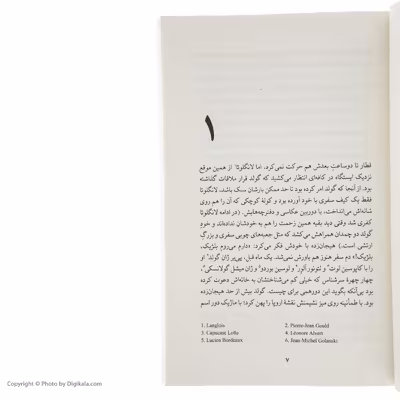 ۱
قطار تا دو ساعت بعدش هم حرکت نمی‌کرد، اما لانگلوئا¹ از همین موقع
نزدیک ایستگاه در کافه‌ای انتظار می‌کشید که گولد² قرار ملاقات گذاشته
بود. از آنجا که گولد امر کرده بود تا حد ممکن بارشان سبک باشد، لانگلوئا
فقط یک کیف سفری با خود آورده بود و کوله کوچکی که آن را هم روی
شانه‌اش می‌انداخت، با دوربین عکاسی و دفترچه‌هایش. (در ادامه لانگلوئا
کفری شد وقتی دید بقیه همین زحمت را هم به خودشان نداده‌اند و خود
گولد دو چمدان همراهش می‌کشد که مثل جعبه‌های چوبی سفری و بزرگ
ارتشی است.) هیجان‌زده با خودش فکر می‌کرد: «دارم می‌روم بلژیک،
بلژیک!» دم سفر هنوز هم باورش نمی‌شد. یک ماه قبل، پی‌یر ژان گولد او
را با کاپوسین لوت³ و لئونور آلور⁴ و لوسین بوردو⁵ و ژان میشل گولانسکی⁶،
چهار چهره سرشناس که خیلی کم می‌شناختشان به خانه‌اش دعوت کرده
بود بی‌آنکه بگوید این دورهمی برای چیست. گولد بیش از حد هیجان‌زده
بود. با طمأنینه روی میز نشیمنش نقشه اروپا را پهن کرد؛ با ماژیک دور اسم
1. Langlois 2. Pierre-Jean Gould
3. Capucine Lotte 4. Léonore
5. Lucien Bordeaux 6. Jean-Michel Golanski
۷
Copyright © Photo by Digikala.com